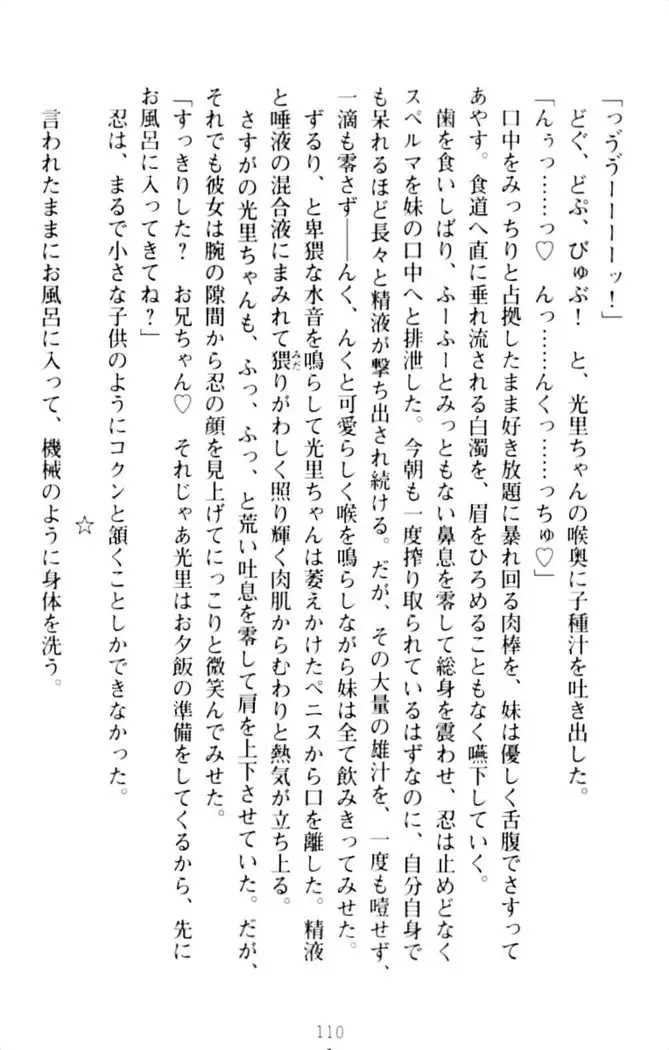 「っづづーーーーッ！」
どぐ、どぷ、びゅぶ！　と、光里ちゃんの喉奥に子種汁を吐き出した。
「んぅっ……っ♡　んっ……んくっ……っちゅ♡」
口中をみっちりと占拠したまま好き放題に暴れ回る肉棒を、妹は優しく舌腹でさすって
あやす。食道へ直に垂れ流される白濁を、眉をひろめることもなく嚥下していく。
歯を食いしばり、ふーふーとみっともない鼻息を零して総身を震わせ、忍は止めどなく
スペルマを妹の口中へと排泄した。今朝も一度搾り取られているはずなのに、自分自身で
も呆れるほど長々と精液が撃ち出され続ける。だが、その大量の雄汁を、一度も噎せず、
一滴も零さず――んく、んくと可愛らしく喉を鳴らしながら妹は全て飲みきってみせた。
ずるり、と卑猥な水音を鳴らして光里ちゃんは萎えかけたペニスから口を離した。精液
と唾液の混合液にまみれて猥りがわしく照り輝く肉肌からむわりと熱気が立ち上る。
さすがの光里ちゃんも、ふっ、ふっ、と荒い吐息を零して肩を上下させていた。だが、
それでも彼女は腕の隙間から忍の顔を見上げてにっこりと微笑んでみせた。
「すっきりした？　お兄ちゃん♡　それじゃあ光里はお夕飯の準備をしてくるから、先に
お風呂に入ってきてね？」
忍は、まるで小さな子供のようにコクンと頷くことしかできなかった。
☆
言われたままにお風呂に入って、機械のように身体を洗う。
110